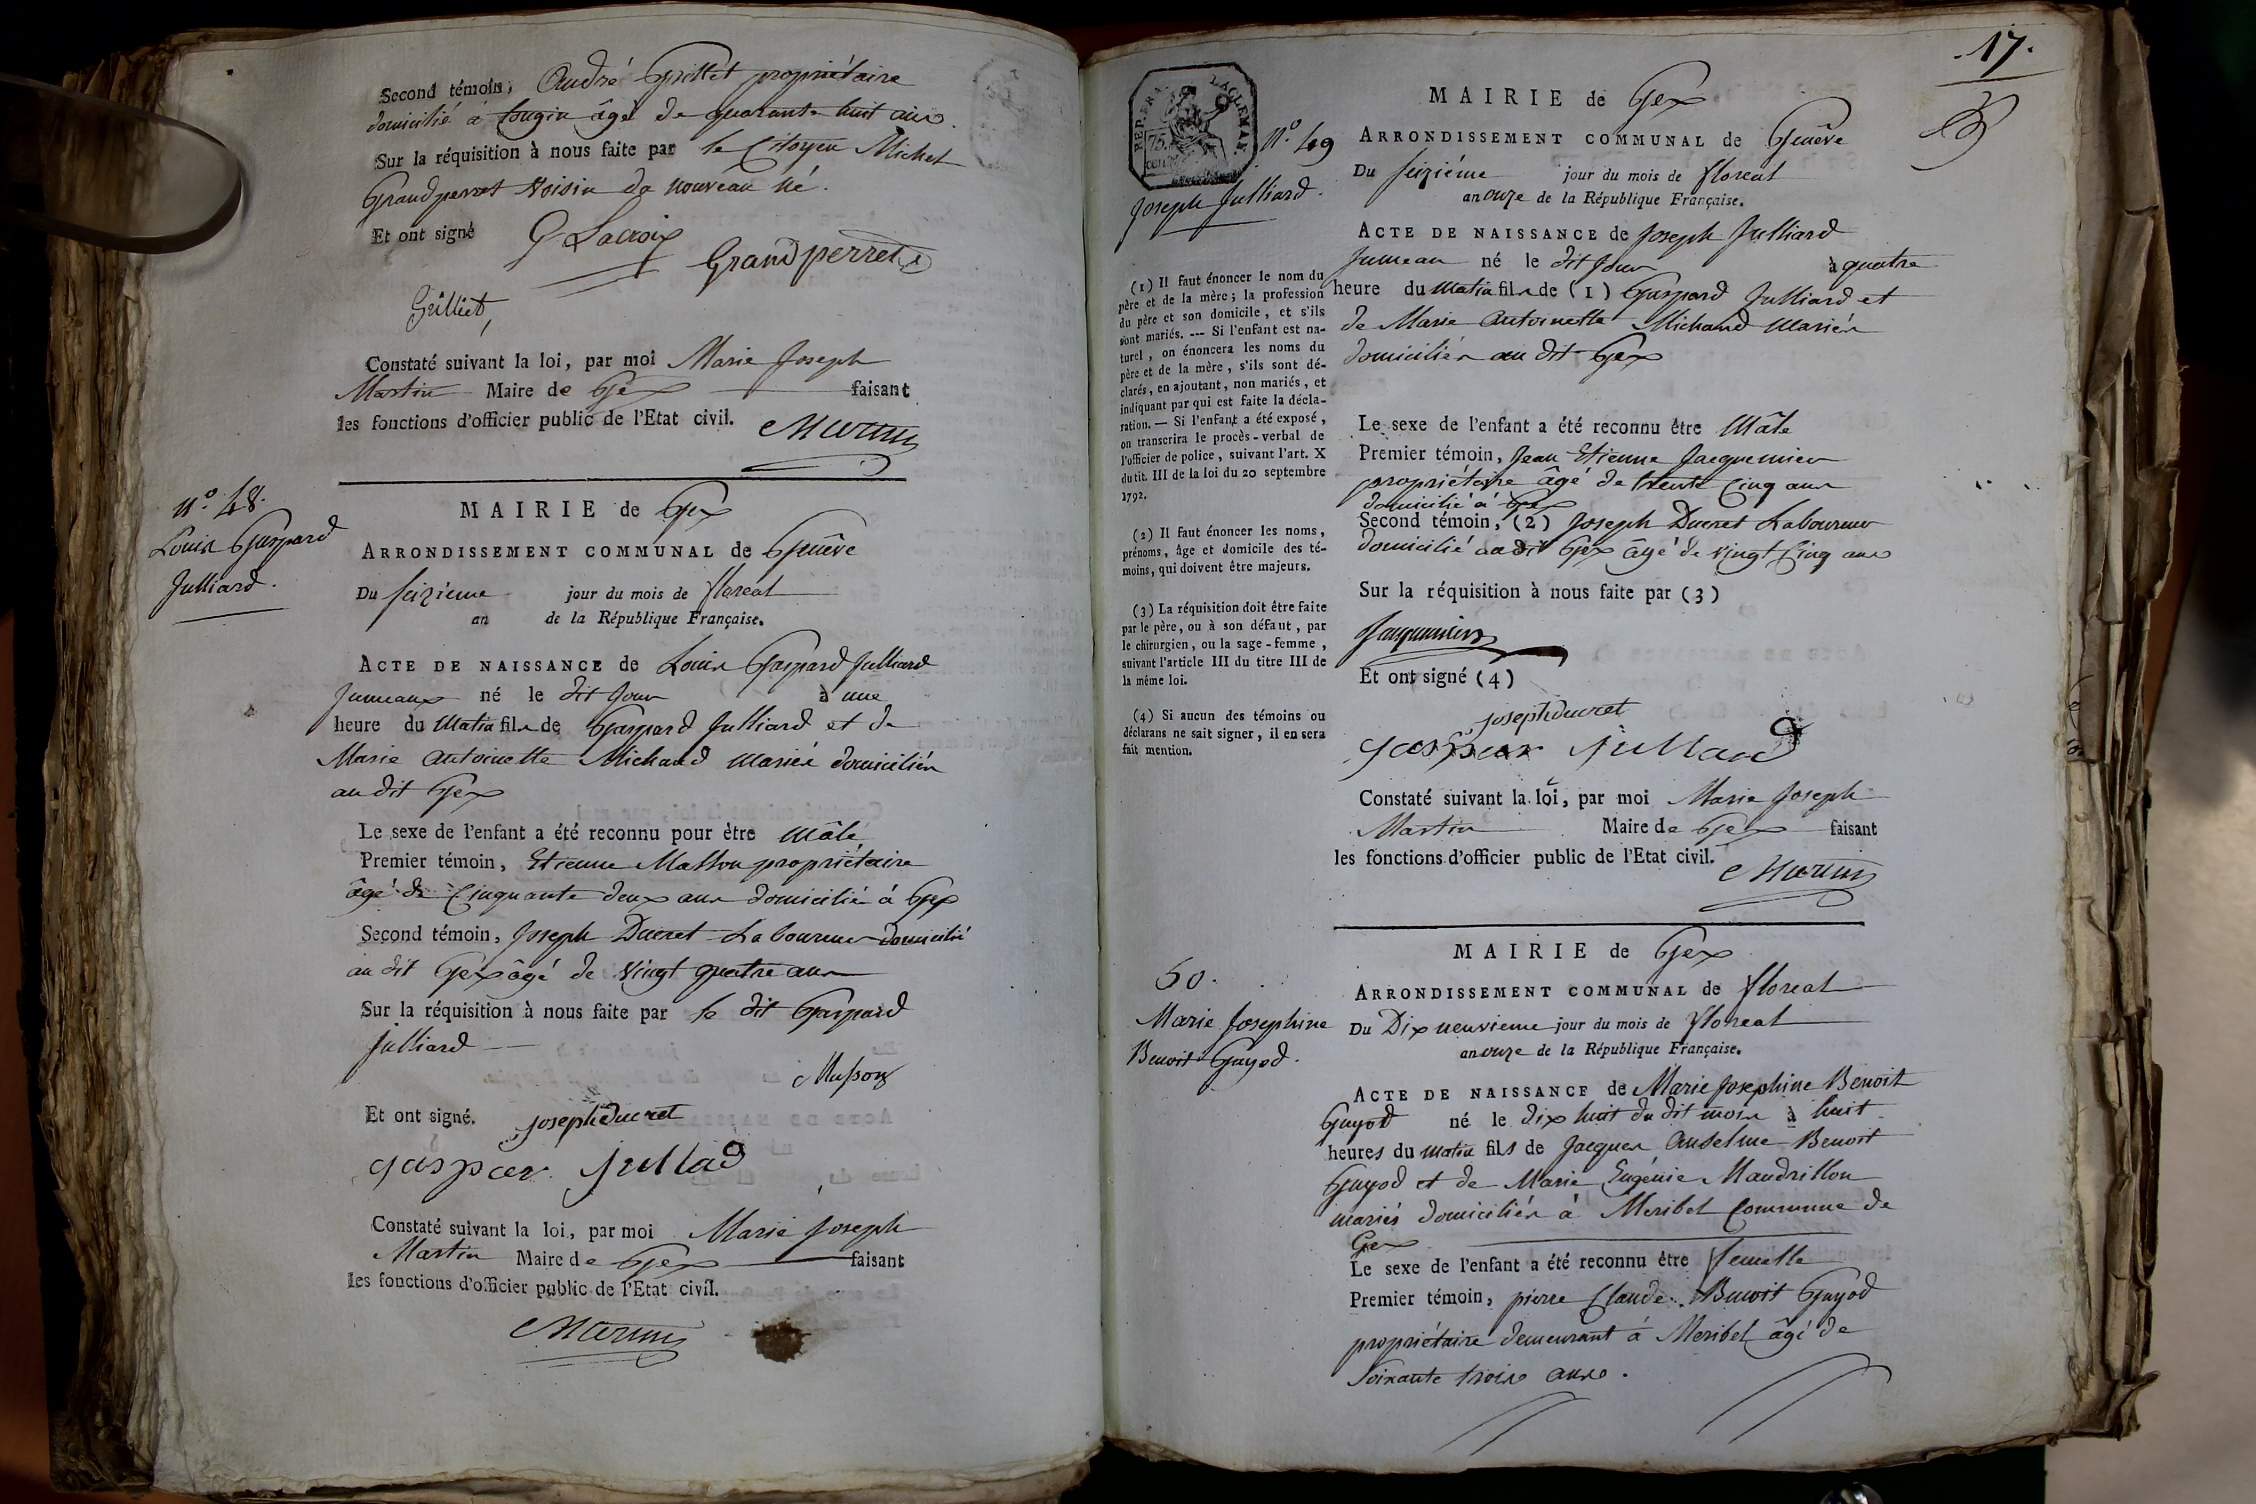 Second témoin, André Grillet propriétaire
domicilié à Tougin âgé de quarante huit ans.
Sur la réquisition à nous faite par le Citoyen Michel
Grandperret Voisin du nouveau né.
Et ont signé G Lacroix
Grandperret
Grilliet,
Constaté suivant la loi, par moi Marie Joseph
Martin Maire de Gex faisant
les fonctions d'officier public de l'Etat civil.
Martin
N.º 48.
Louis Gaspard
Julliard.
MAIRIE de Gex
ARRONDISSEMENT COMMUNAL de Genêve
Du seizieme jour du mois de floreal
an de la République Française.
ACTE DE NAISSANCE de Louis Gaspard Julliard
Jumeaux né le dit Jour à une
heure du Matin fils de Gaspard Julliard et de
Marie Antoinette Michaud mariés domiciliés
au dit Gex
Le sexe de l'enfant a été reconnu pour être Mâle
Premier témoin, Etienne Masson propriétaire
âgé de Cinquante deux ans domicilié à Gex
Second témoin, Joseph Ducret Laboureur domicilié
au dit Gex âgé de vingt quatre ans
Sur la réquisition à nous faite par le dit Gaspard
Julliard
Masson
Et ont signé. joseph ducret
gaspar jullad
Constaté suivant la loi, par moi Marie Joseph
Martin Maire de Gex faisant
les fonctions d'officier public de l'Etat civil.
Martin
17.
REP. FRA.
75.
CEN
N.º 49
Joseph Julliard.
(1) Il faut énoncer le nom du
père et de la mère; la profession
du père et son domicile, et s'ils
sont mariés. --- Si l'enfant est na-
turel, on énoncera les noms du
père et de la mère, s'ils sont dé-
clarés, en ajoutant, non mariés, et
indiquant par qui est faite la décla-
ration. — Si l'enfant a été exposé,
on transcrira le procès-verbal de
l'officier de police, suivant l'art. X
du tit. III de la loi du 20 septembre
1792.
(2) Il faut énoncer les noms,
prénoms, âge et domicile des té-
moins, qui doivent être majeurs.
(3) La réquisition doit être faite
par le père, ou à son défaut, par
le chirurgien, ou la sage-femme,
suivant l'article III du titre III de
la même loi.
(4) Si aucun des témoins ou
déclarans ne sait signer, il en sera
fait mention.
MAIRIE de Gex
ARRONDISSEMENT COMMUNAL de Genêve
Du seizième jour du mois de floreal
an onze de la République Française.
ACTE DE NAISSANCE de Joseph Julliard
Jumeau né le dit Jour à quatre
heure du Matin fils de (1) Gaspard Julliard et
de Marie Antoinette Michaud Mariés
domiciliés au dit Gex
Le sexe de l'enfant a été reconnu être Mâle
Premier témoin, Jean Etienne Jacquemier
propriétaire âgé de trente Cinq ans
domicilié à Gex
Second témoin, (2) Joseph Ducret Laboureur
domicilié au dit Gex âgé de vingt Cinq ans
Sur la réquisition à nous faite par (3)
Jacquemier
Et ont signé (4)
joseph ducret
gaspar julliard
Constaté suivant la loi, par moi Marie Joseph
Martin Maire de Gex faisant
les fonctions d'officier public de l'Etat civil.
Martin
50.
Marie Josephine
Benoit Guyod.
MAIRIE de Gex
ARRONDISSEMENT COMMUNAL de floreal
Du Dix neuvieme jour du mois de floreal
an onze de la République Française.
ACTE DE NAISSANCE de Marie Josephine Benoit
Guyod né le dix huit du dit mois à huit
heures du matin fils de Jacques Anselme Benoit
Guyod et de Marie Eugénie Mandrillon
mariés domiciliés à Meribel Commune de
Gex
Le sexe de l'enfant a été reconnu être femelle
Premier témoin, pierre Claude Benoit Guyod
propriétaire demeurant à Meribel âgé de
soixante trois ans.